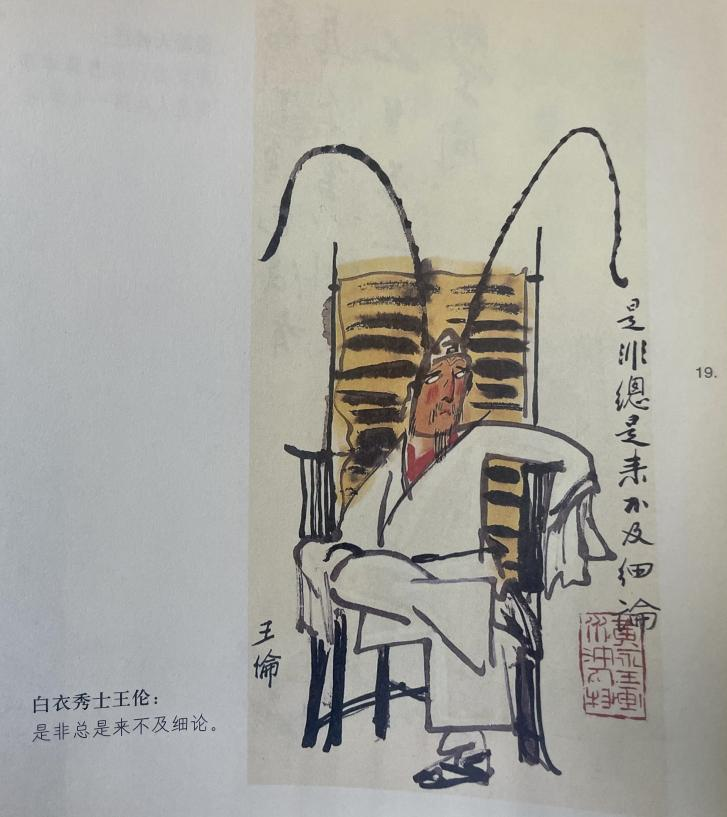 是非總是来不及细論
19.
王倫
白衣秀士王伦：
是非总是来不及细论。